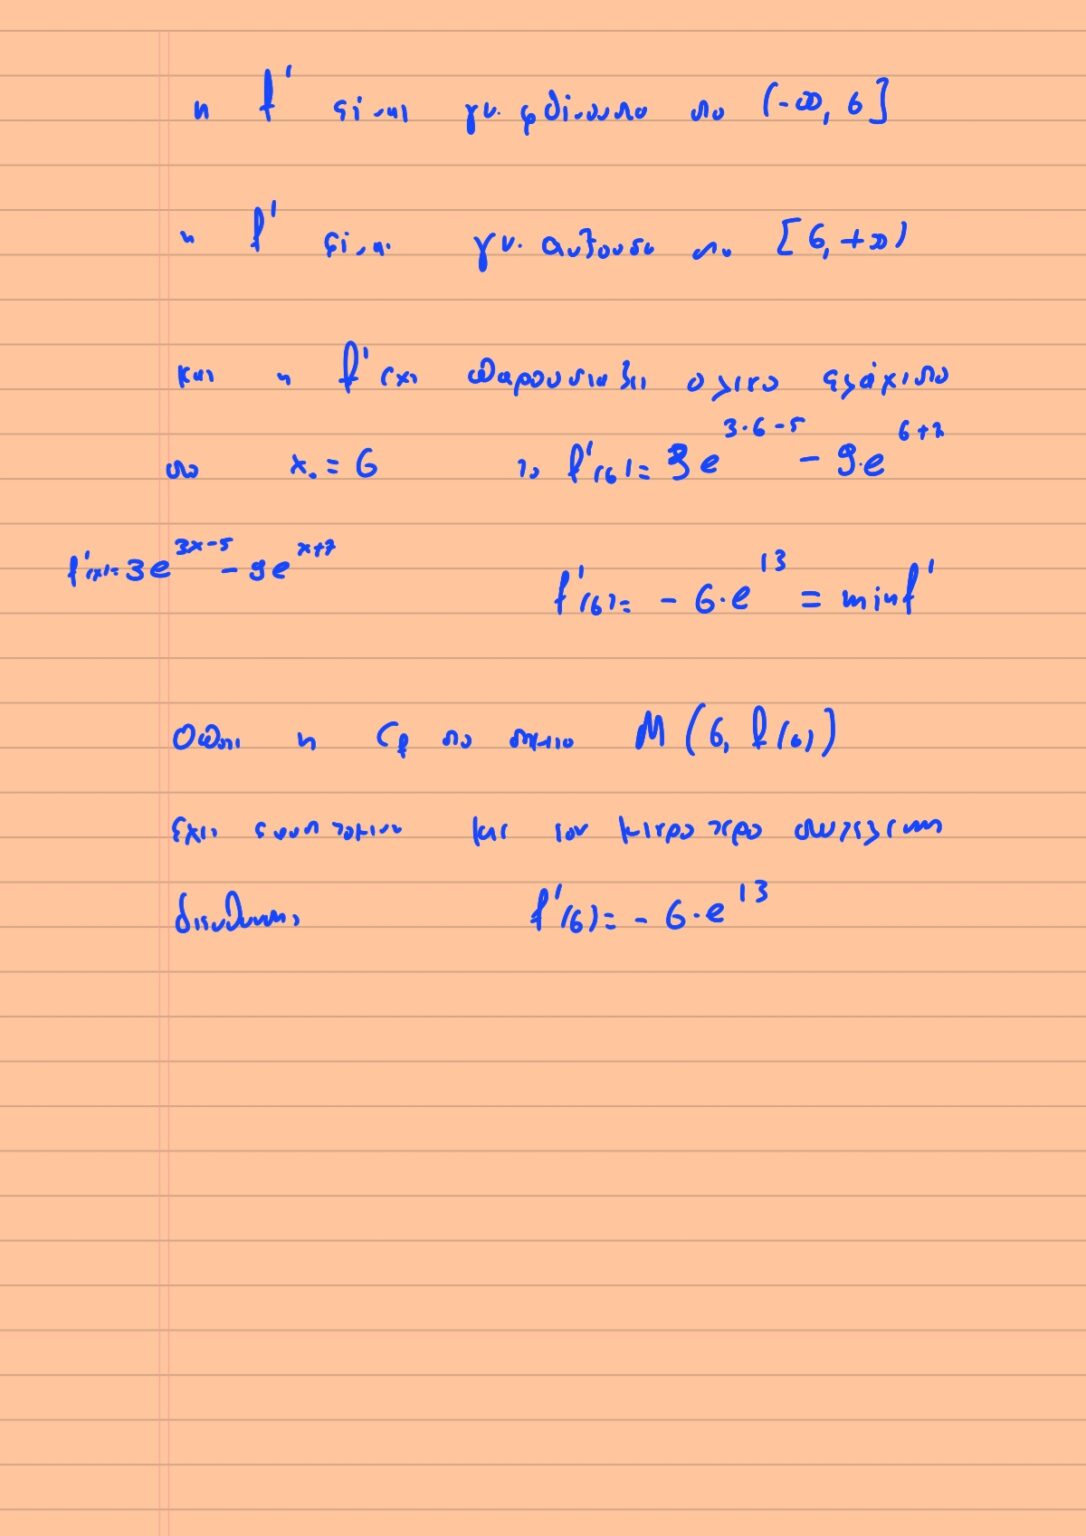 η f' είναι γν. φθίνουσα στο (-∞, 6]
η f' είναι γν. αύξουσα στο [6, +∞)
και η f' έχει παρουσιάζει ολικο ελάχιστο
στο x₀ = 6 το f'(6) = 3e^{3·6-5} - 9·e^{6+7}
f'(x) = 3e^{3x-5} - 9e^{x+7}
f'(6) = -6·e^{13} = minf'
Οποτε η Cf στο σημειο M(6, f(6))
εχει εφαπτομενη και τον μικροτερο συντελεστη
διευθυνσης f'(6) = -6·e^{13}